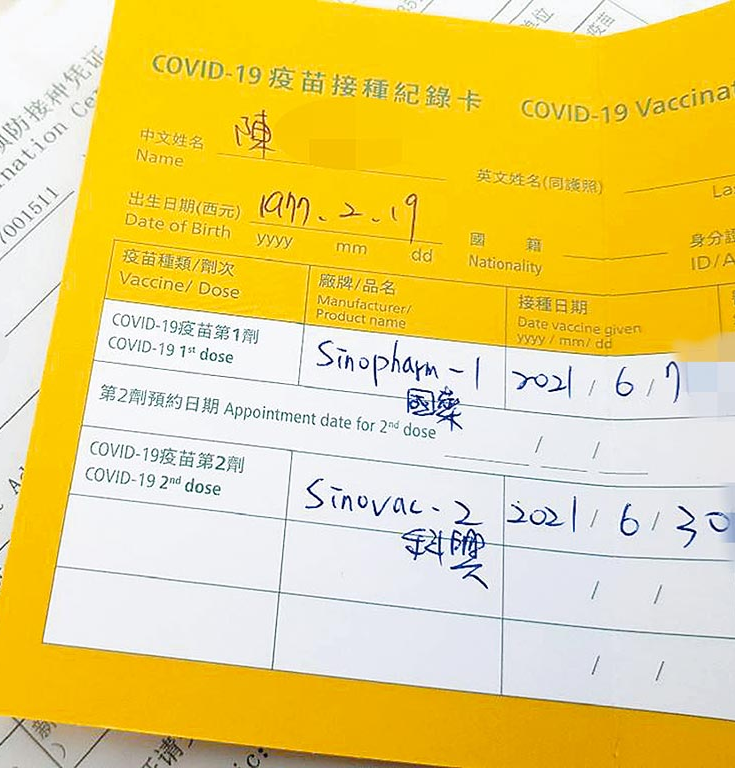 預防接種凭证
nation Ce
7001511
单位
疫苗
COVID-19 疫苗接種紀錄卡 COVID-19 Vaccinat
中文姓名 陳
Name
英文姓名(同護照)
La
出生日期(西元) 1977.2.19
Date of Birth yyyy mm dd
國 籍
Nationality
身分證
ID/A
疫苗種類/劑次 廠牌/品名 接種日期
Vaccine/ Dose Manufacturer/ Date vaccine given
Product name yyyy / mm/ dd
COVID-19疫苗第1劑 Sinopharm-1 2021 / 6 / 7
COVID-19 1st dose 國藥
第2劑預約日期 Appointment date for 2nd dose / /
COVID-19疫苗第2劑 Sinovac-2 2021 / 6 / 30
COVID-19 2nd dose 科興
/ /
/ /